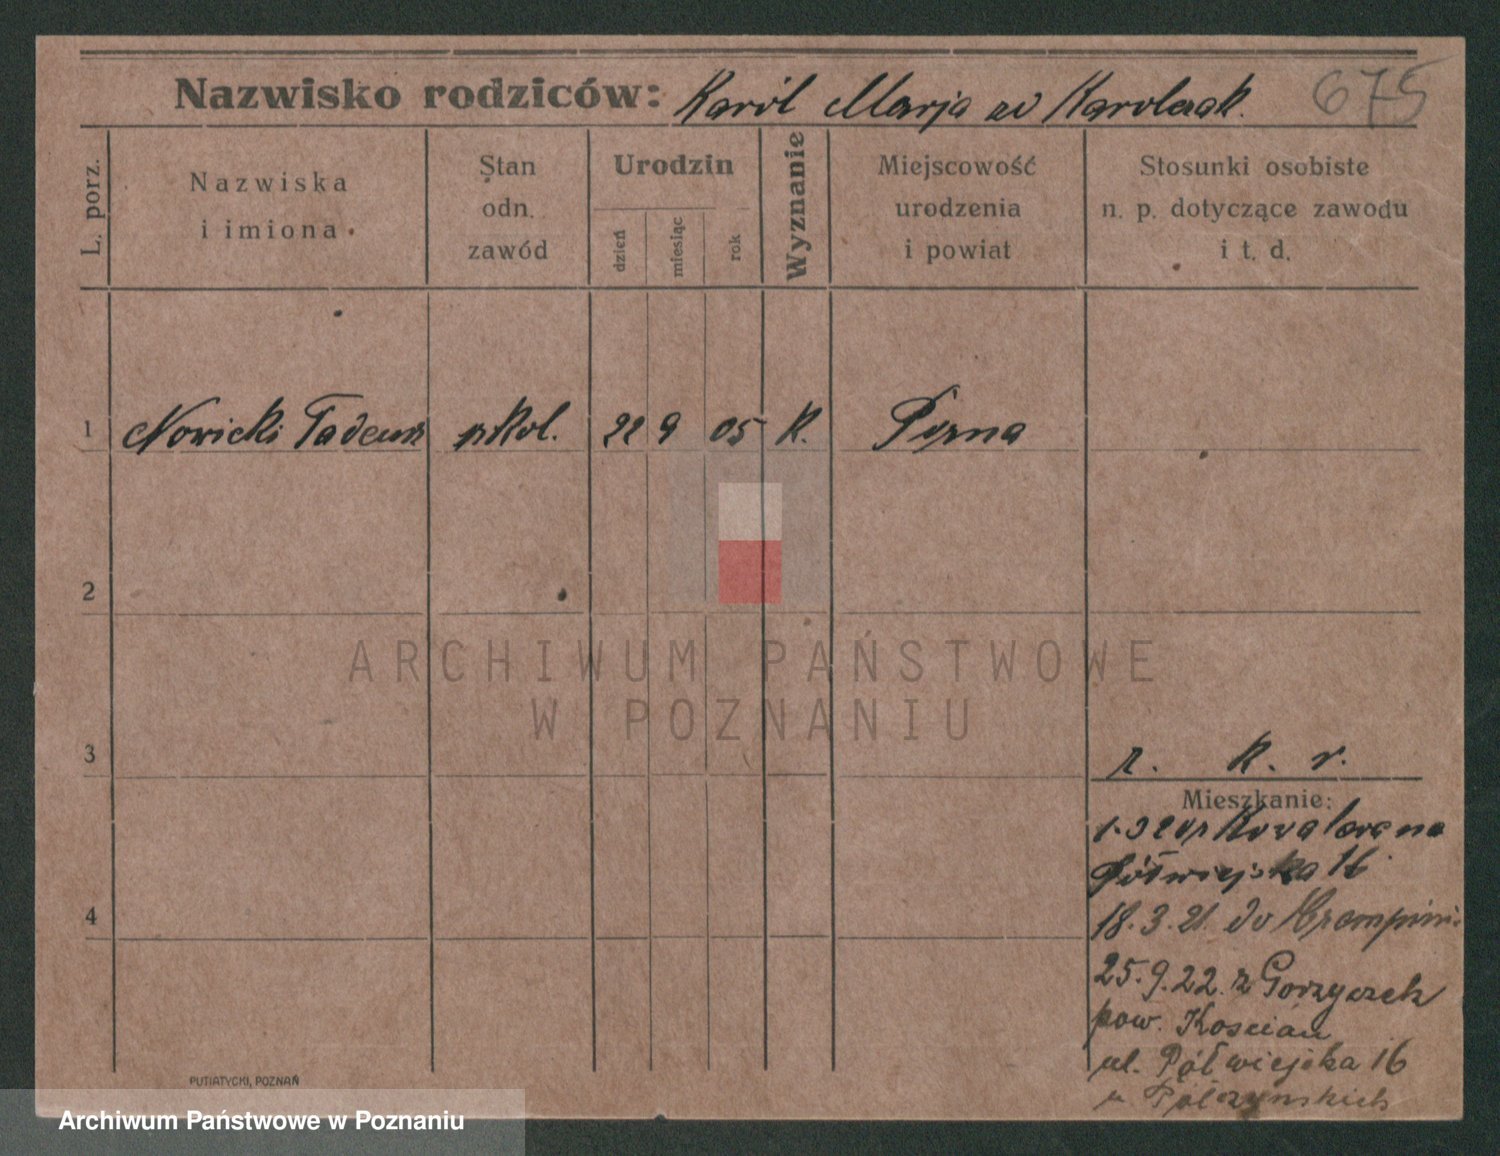 Nazwisko rodziców: Karól Marja zd Karolczak. 675
L. porz.
Nazwiska
i imiona
Stan
odn.
zawód
Urodzin
dzień
miesiąc
rok
Wyznanie
Miejscowość
urodzenia
i powiat
Stosunki osobiste
n. p. dotyczące zawodu
i t. d.
1 Nowicki Tadeusz 22 9 05 K.
2
ARCHIWUM PAŃSTWOWE
W POZNANIU
3
r. k. r.
Mieszkanie:
Półwiejska 16
4
18.3.21. do
25.9.22. z Gorzyczek
pow. Kościan
ul. Półwiejska 16
u Półczyńskich
PUTIATYCKI, POZNAŃ
Archiwum Państwowe w Poznaniu